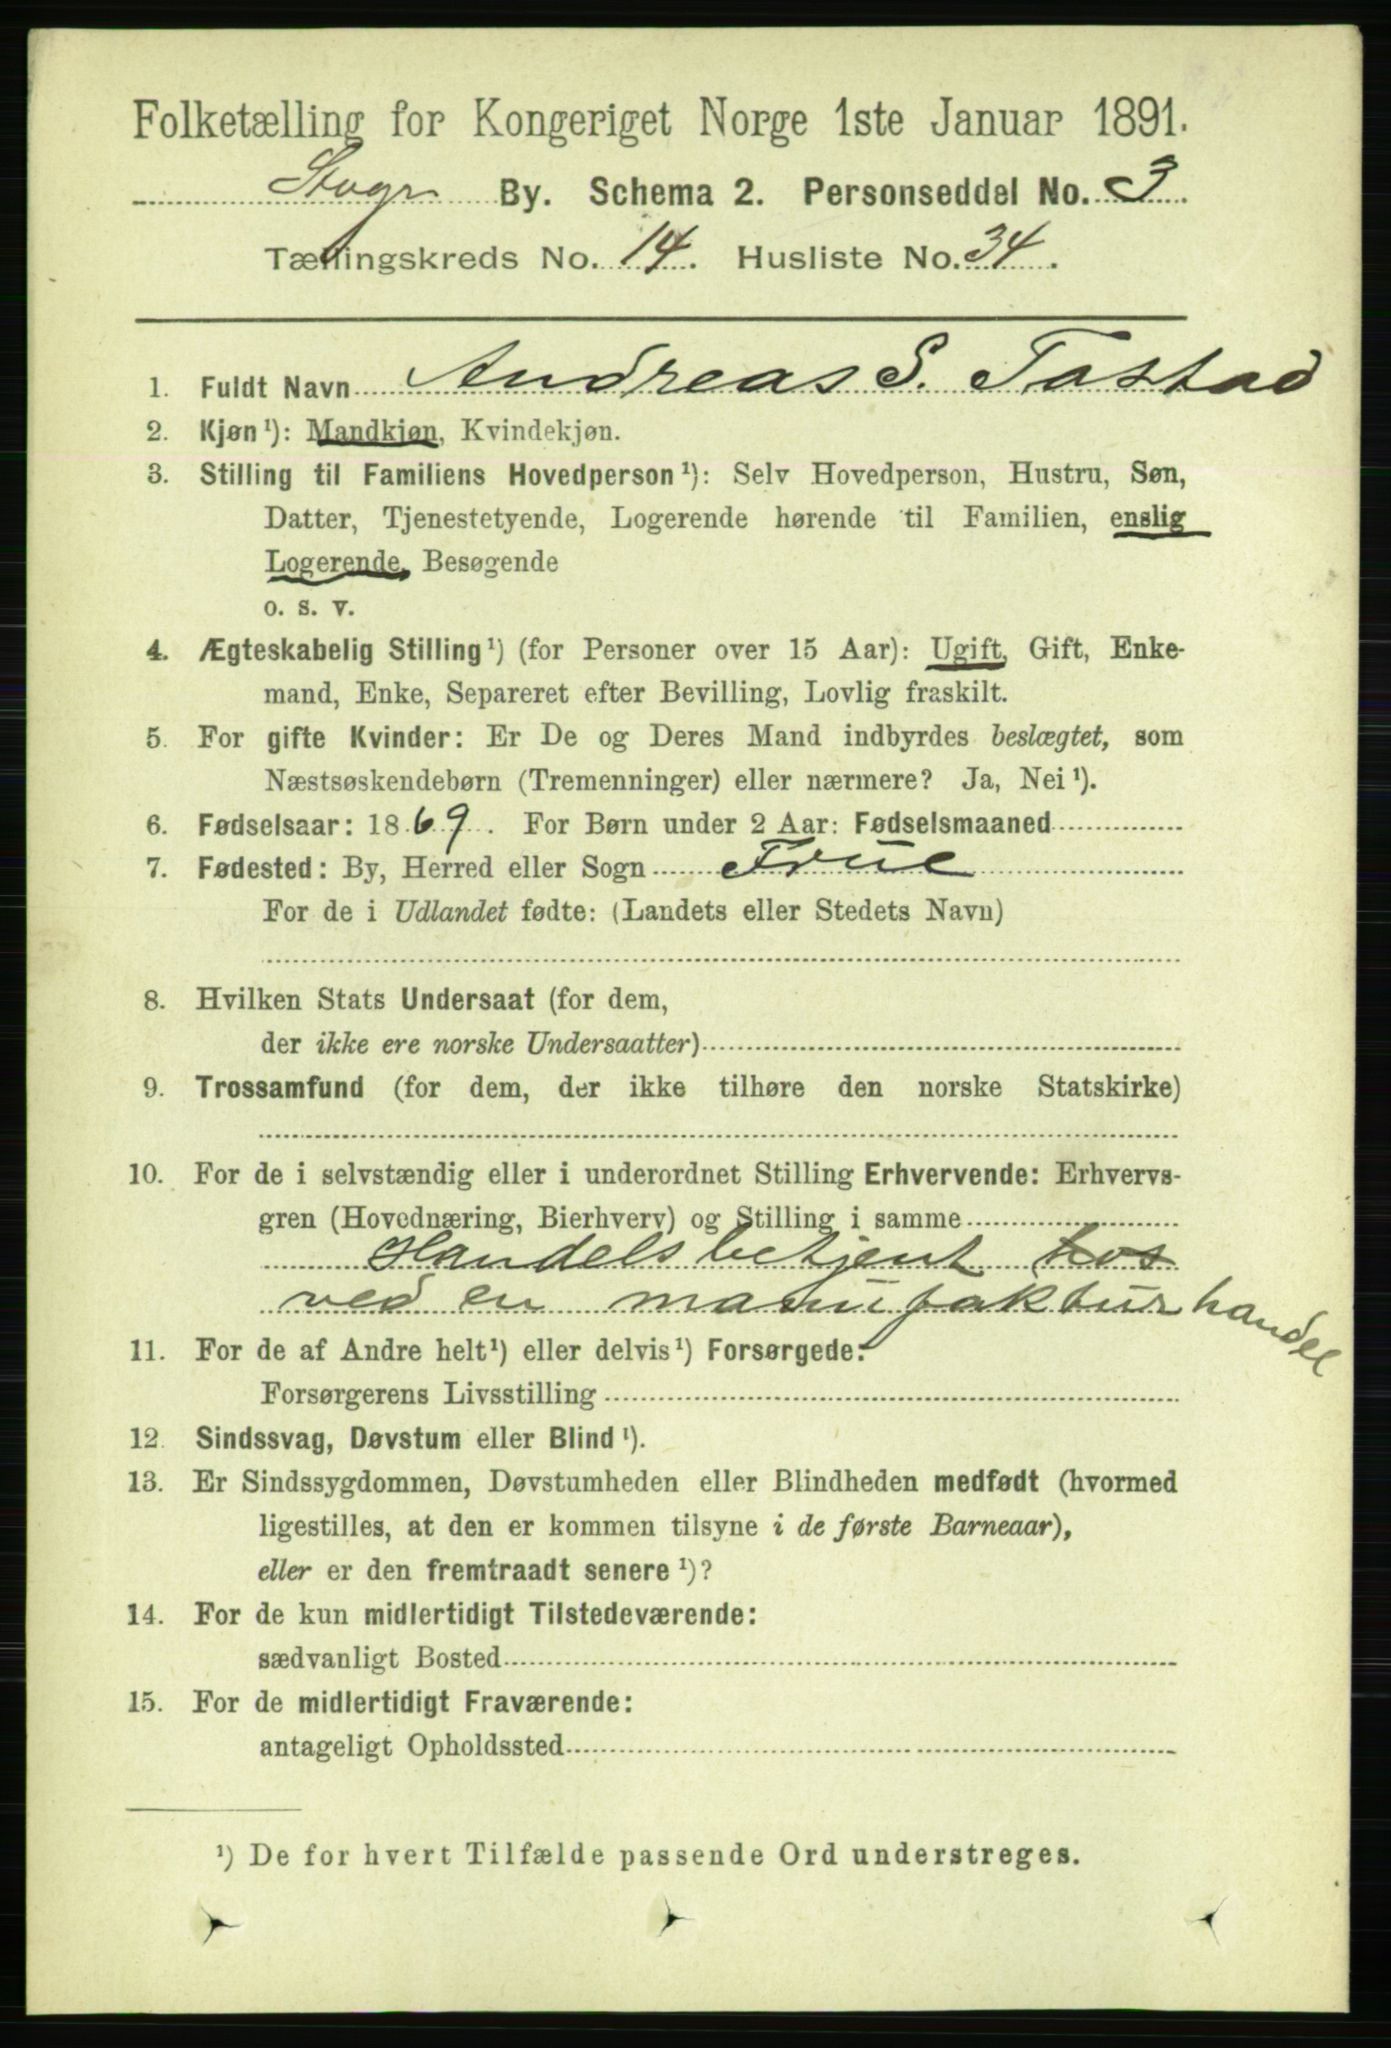 Folketælling for Kongeriget Norge 1ste Januar 1891.
Stvgr By. Schema 2. Personseddel No. 3.
Tællingskreds No. 14. Husliste No. 34.
1. Fuldt Navn Andreas S. Tastad
2. Kjøn¹): Mandkjøn, Kvindekjøn.
3. Stilling til Familiens Hovedperson¹): Selv Hovedperson, Hustru, Søn,
Datter, Tjenestetyende, Logerende hørende til Familien, enslig
Logerende, Besøgende
o. s. v.
4. Ægteskabelig Stilling¹) (for Personer over 15 Aar): Ugift, Gift, Enke-
mand, Enke, Separeret efter Bevilling, Lovlig fraskilt.
5. For gifte Kvinder: Er De og Deres Mand indbyrdes beslægtet, som
Næstsøskendebørn (Tremenninger) eller nærmere? Ja, Nei¹).
6. Fødselsaar: 1869. For Børn under 2 Aar: Fødselsmaaned
7. Fødested: By, Herred eller Sogn Frue
For de i Udlandet fødte: (Landets eller Stedets Navn)
8. Hvilken Stats Undersaat (for dem,
der ikke ere norske Undersaatter)
9. Trossamfund (for dem, der ikke tilhøre den norske Statskirke)
10. For de i selvstændig eller i underordnet Stilling Erhvervende: Erhvervs-
gren (Hovednæring, Bierhverv) og Stilling i samme
Handelsbetjent hos
ved en manufakturhandel
11. For de af Andre helt¹) eller delvis¹) Forsørgede:
Forsørgerens Livsstilling
12. Sindssvag, Døvstum eller Blind¹).
13. Er Sindssygdommen, Døvstumheden eller Blindheden medfødt (hvormed
ligestilles, at den er kommen tilsyne i de første Barneaar),
eller er den fremtraadt senere¹)?
14. For de kun midlertidigt Tilstedeværende:
sædvanligt Bosted
15. For de midlertidigt Fraværende:
antageligt Opholdssted
¹) De for hvert Tilfælde passende Ord understreges.